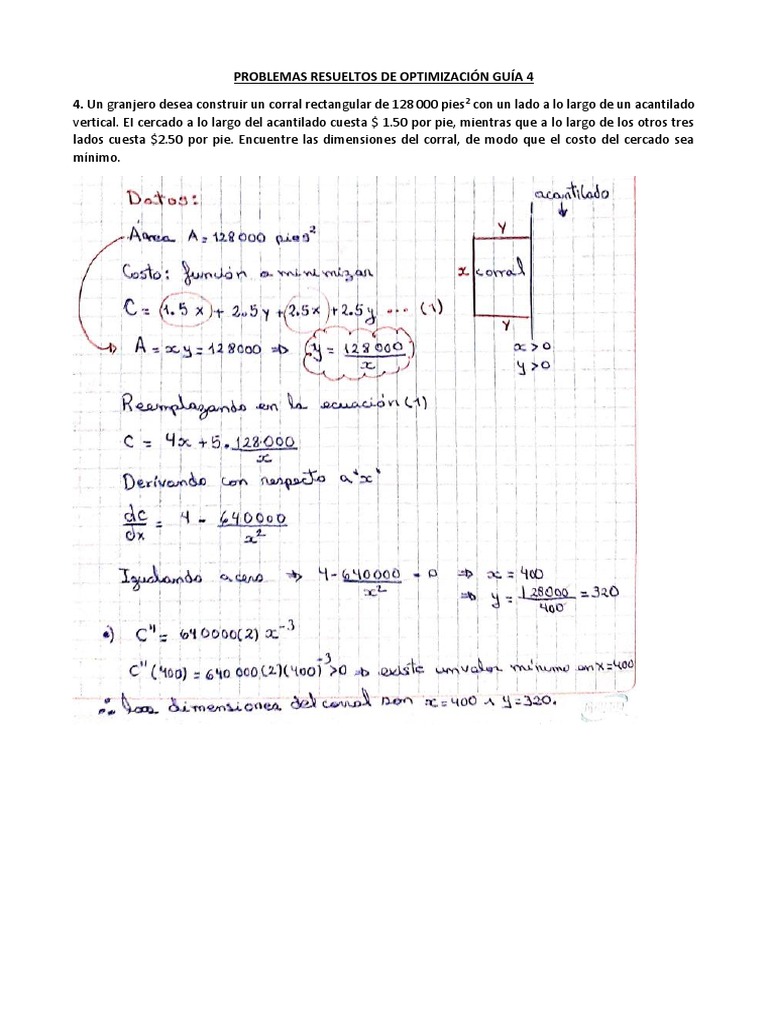 PROBLEMAS RESUELTOS DE OPTIMIZACIÓN GUÍA 4
4. Un granjero desea construir un corral rectangular de 128 000 pies² con un lado a lo largo de un acantilado
vertical. El cercado a lo largo del acantilado cuesta $ 1.50 por pie, mientras que a lo largo de los otros tres
lados cuesta $2.50 por pie. Encuentre las dimensiones del corral, de modo que el costo del cercado sea
mínimo.
Datos:
acantilado
Área A = 128000 pies²
y
Costo: función a minimizar
x corral
C = (1.5 x) + 2.5y + (2.5x) + 2.5y ... (1)
y
A = xy = 128000 ⇒ y = 128000/x
x > 0
y > 0
Reemplazando en la ecuación (1)
C = 4x + 5 . 128000/x
Derivando con respecto a "x"
dc/dx = 4 - 640000/x²
Igualando a cero ⇒ 4 - 640000/x² = 0 ⇒ x = 400
⇒ y = 128000/400 = 320
•) C'' = 640000(2) x⁻³
C''(400) = 640 000(2)(400)⁻³ > 0 ⇒ existe un valor mínimo en x = 400
∴ las dimensiones del corral son x = 400 ∧ y = 320.